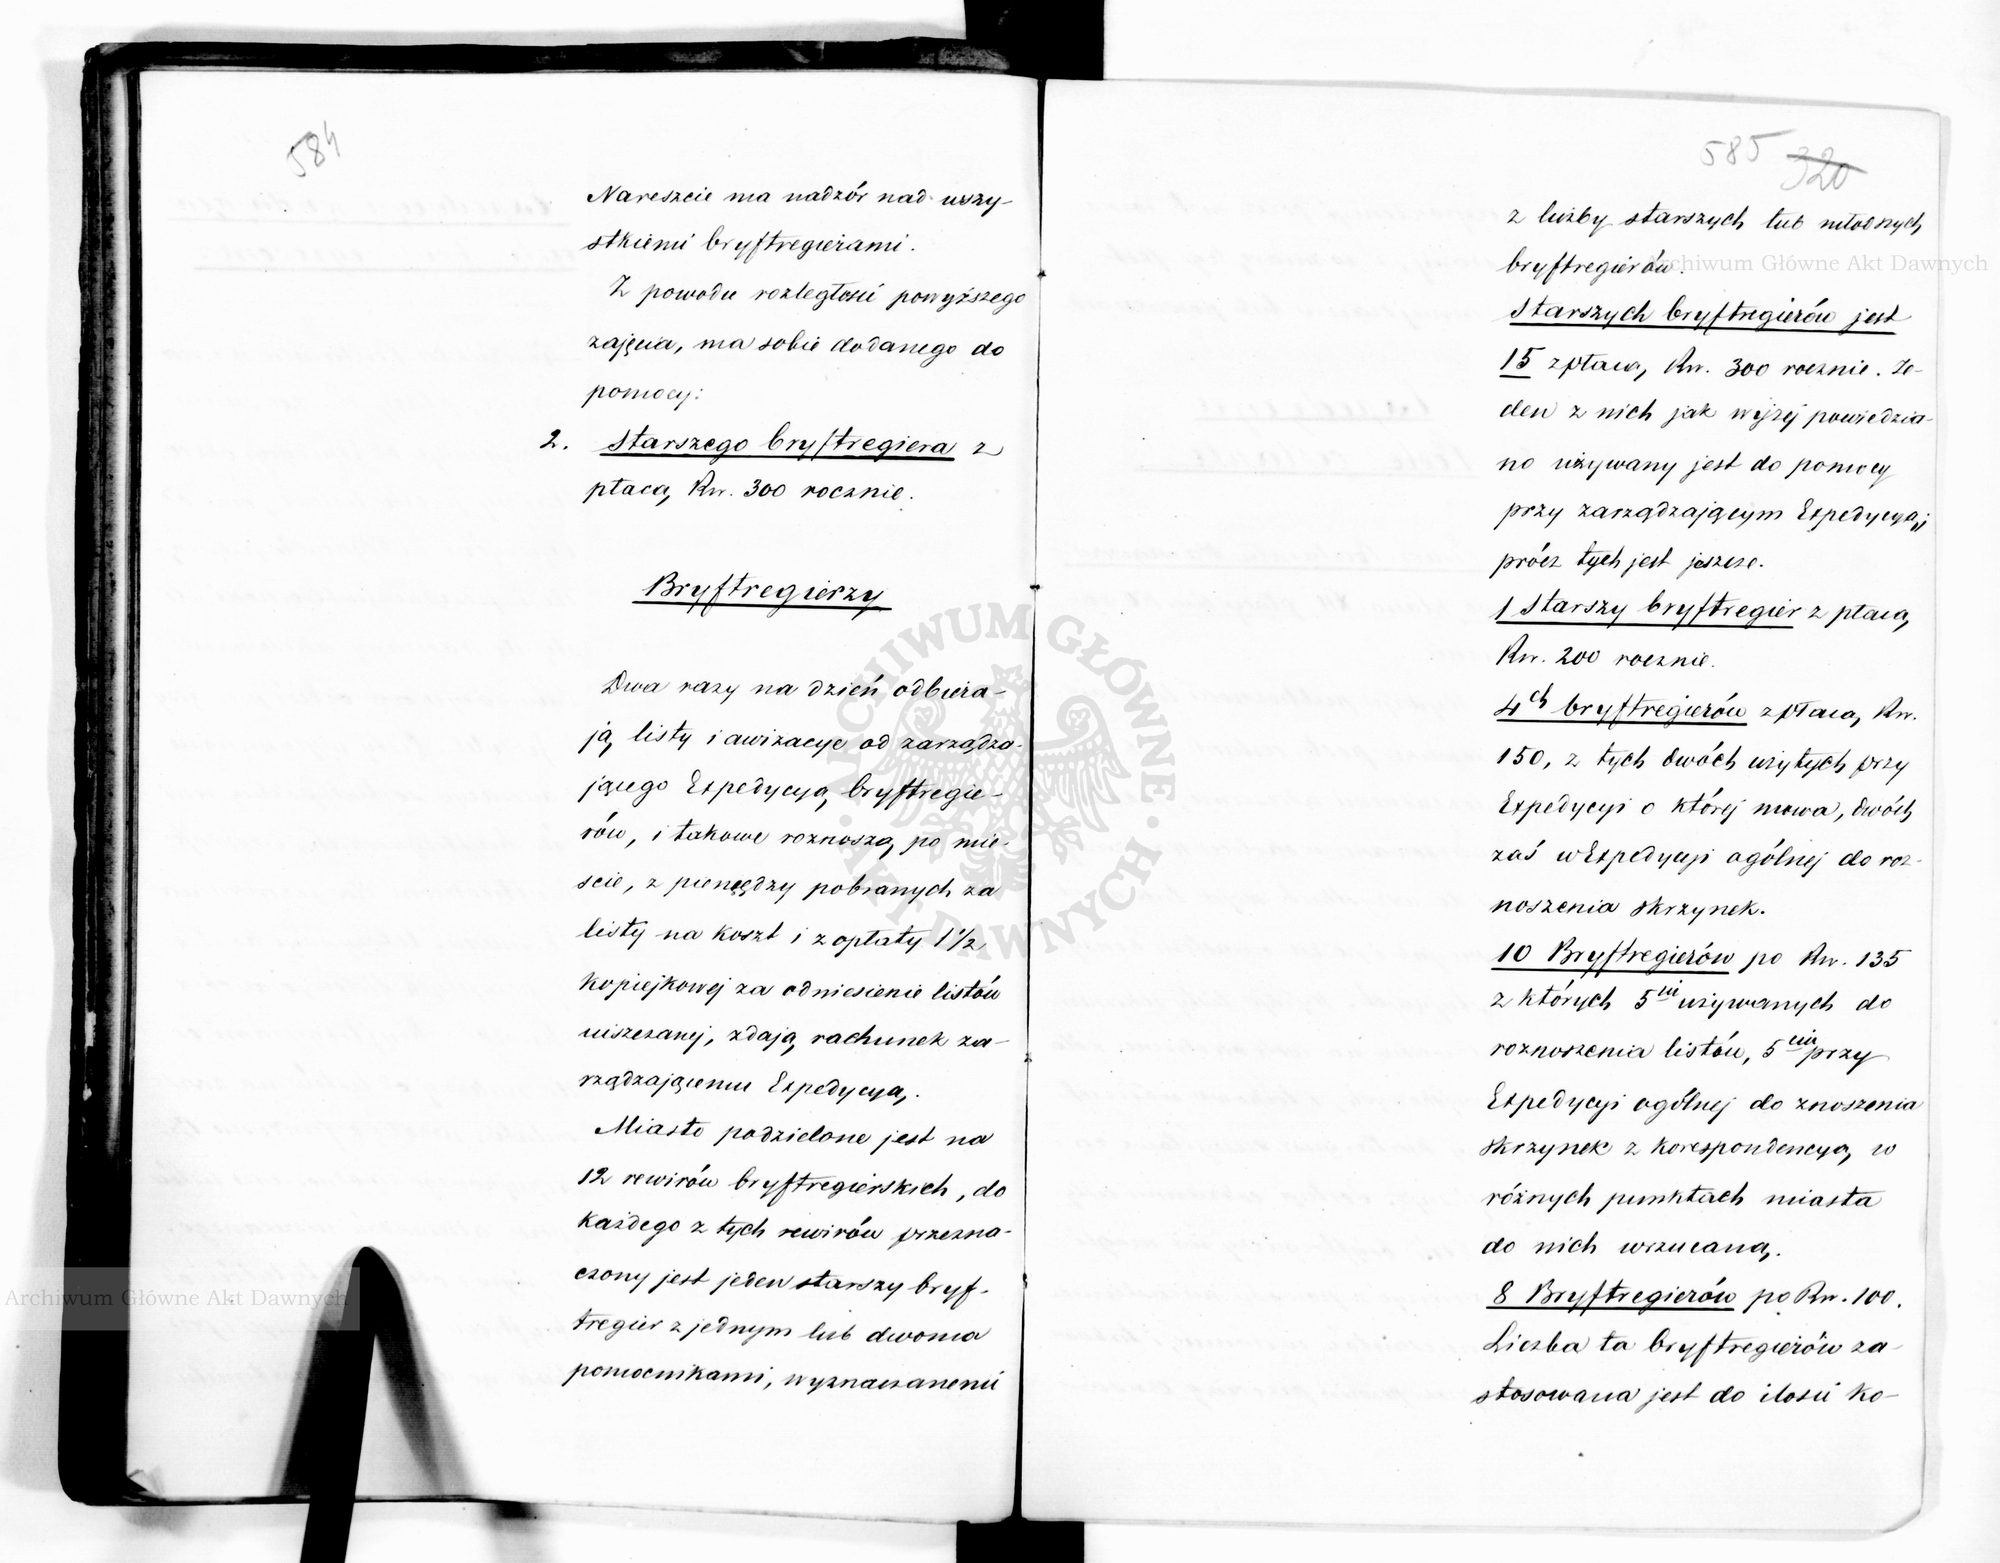 584
Nareszcie ma nadzór nad wszy-
stkiemi bryftregierami.
Z powodu rozległości powyższego
zajęcia, ma sobie dodanego do
pomocy:
2. Starszego bryftregiera z
płacą Rsr. 300 rocznie.
Bryftregierzy
Dwa razy na dzień odbiera-
ją listy i awizacye od zarządza-
jącego Expedycyą bryftregie-
rów, i takowe roznoszą po mie-
scie, z pieniędzy pobranych za
listy na koszt i z opłaty 1 1/2
kopiejkowej za odniesienie listów
uiszczanej, zdają rachunek za-
rządzającemu Expedycyą.
Miasto podzielone jest na
12 rewirów bryftregierskich, do
każdego z tych rewirów przezna-
czony jest jeden starszy bryf-
tregier z jednym lub dwoma
pomocnikami, wyznaczanemi
585 320
z liczby starszych lub młodszych
bryftregierów.
Starszych bryftregierów jest
15 z płacą Rsr. 300 rocznie. Je-
den z nich jak wyżej powiedzia-
no używany jest do pomocy
przy zarządzającym Expedycyą,
prócz tych jest jeszcze.
1 Starszy bryftregier z płacą
Rsr. 200 rocznie.
4ch bryftregierów z płacą Rsr.
150, z tych dwóch użytych przy
Expedycyi o której mowa, dwóch
zaś w Expedycyi ogólnej do roz-
noszenia skrzynek.
10 Bryftregierów po Rsr. 135
z których 5ciu używanych do
roznoszenia listów, 5ciu przy
Expedycyi ogólnej do znoszenia
skrzynek z korespondencyą w
różnych punktach miasta
do nich wrzucaną.
8 Bryftregierów po Rsr. 100.
Liczba ta bryftregierów za-
stosowana jest do ilości ko-
Archiwum Główne Akt Dawnych
Archiwum Główne Akt Dawnych
ARCHIWUM GŁÓWNE · AKT DAWNYCH ·